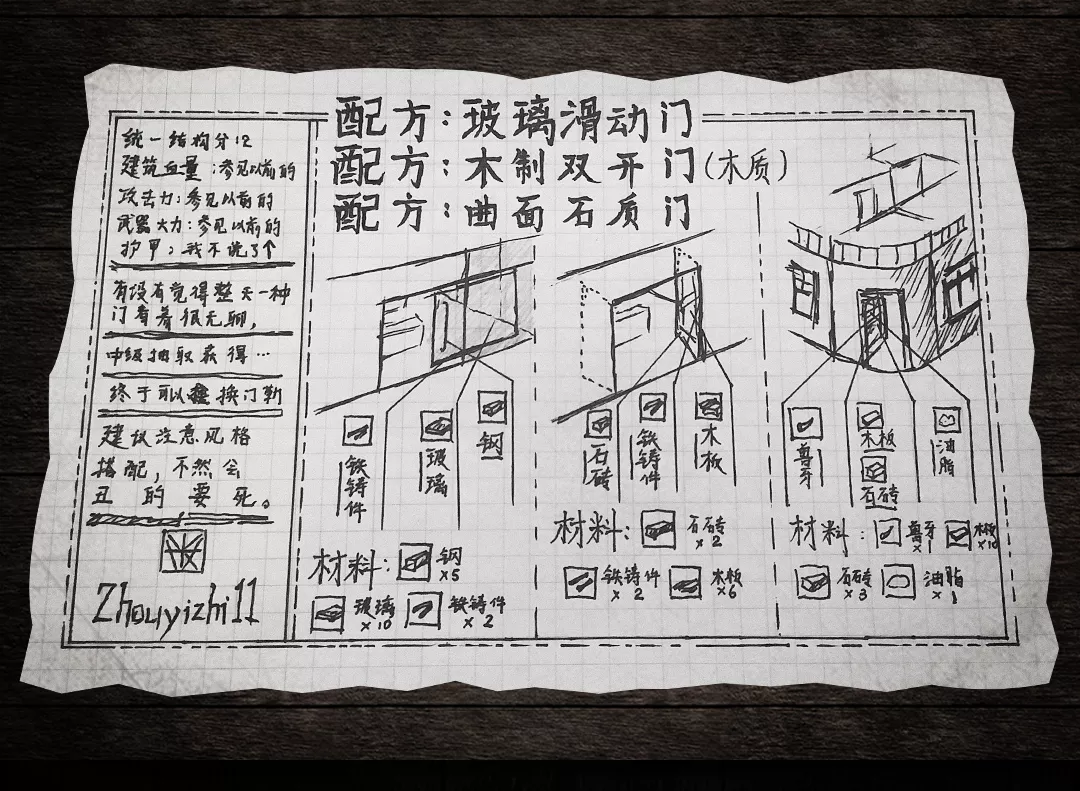 配方:玻璃滑动门
配方:木制双开门(木质)
配方:曲面石质门
统一结构分12
建筑血量:参见以前的
攻击力:参见以前的
武器火力:参见以前的
护甲:我不说了个
有没有觉得整天一种
门看着很无聊,
中级抽取获得…
终于可以换门勒
建议注意风格
搭配,不然会
丑的要死。
Zhouyizhi11
铁铸件
玻璃
钢
材料:
钢
×5
玻璃
×10
铁铸件
×2
石砖
铁铸件
木板
材料:
石砖
×2
铁铸件
×2
木板
×6
兽牙
木板
石砖
油脂
材料:
兽牙
×1
木板
×10
石砖
×3
油脂
×1